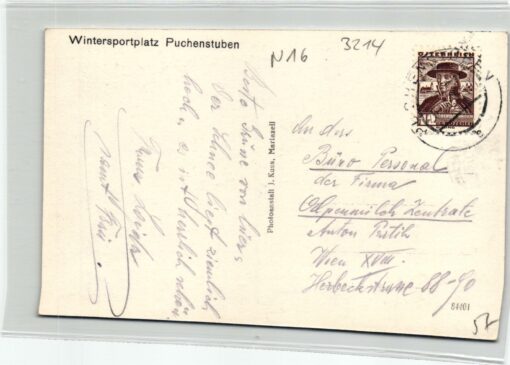 Wintersportplatz Puchenstuben
N16
3214
ÖSTERREICH
Beste Grüsse von hier.
Der Schnee liegt ziemlich
hoch, es ist herrlich schön.
Photoanstalt J. Kuss, Mariazell
An das
Büro Personal
der Firma
Alpenmilch Zentrale
Anton
Wien XVIII.
Herbeckstrasse 88-90